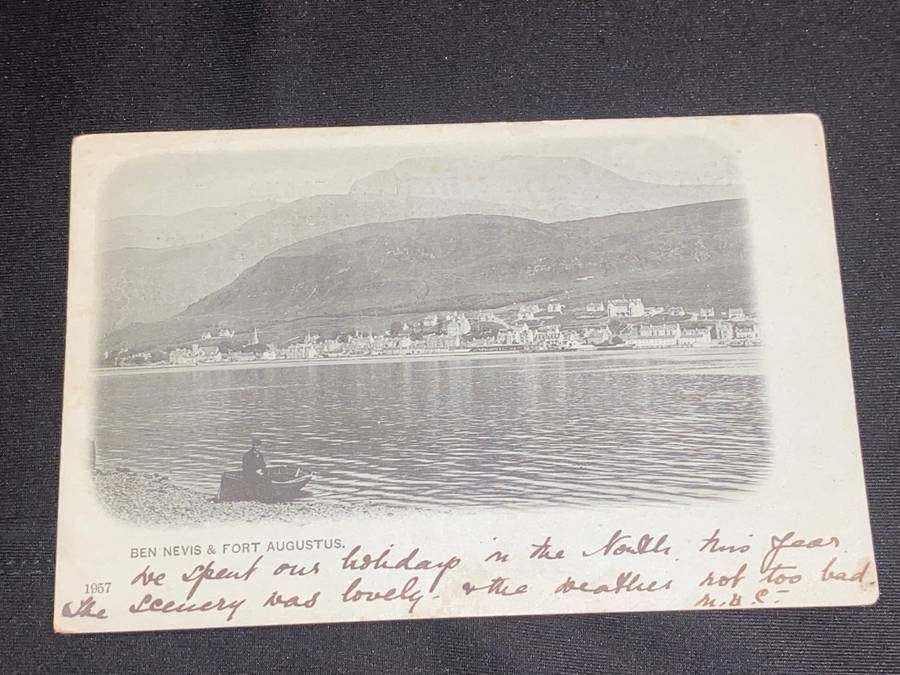 BEN NEVIS & FORT AUGUSTUS.
1957
We spent our holiday in the North this year
The scenery was lovely - & the weather not too bad.